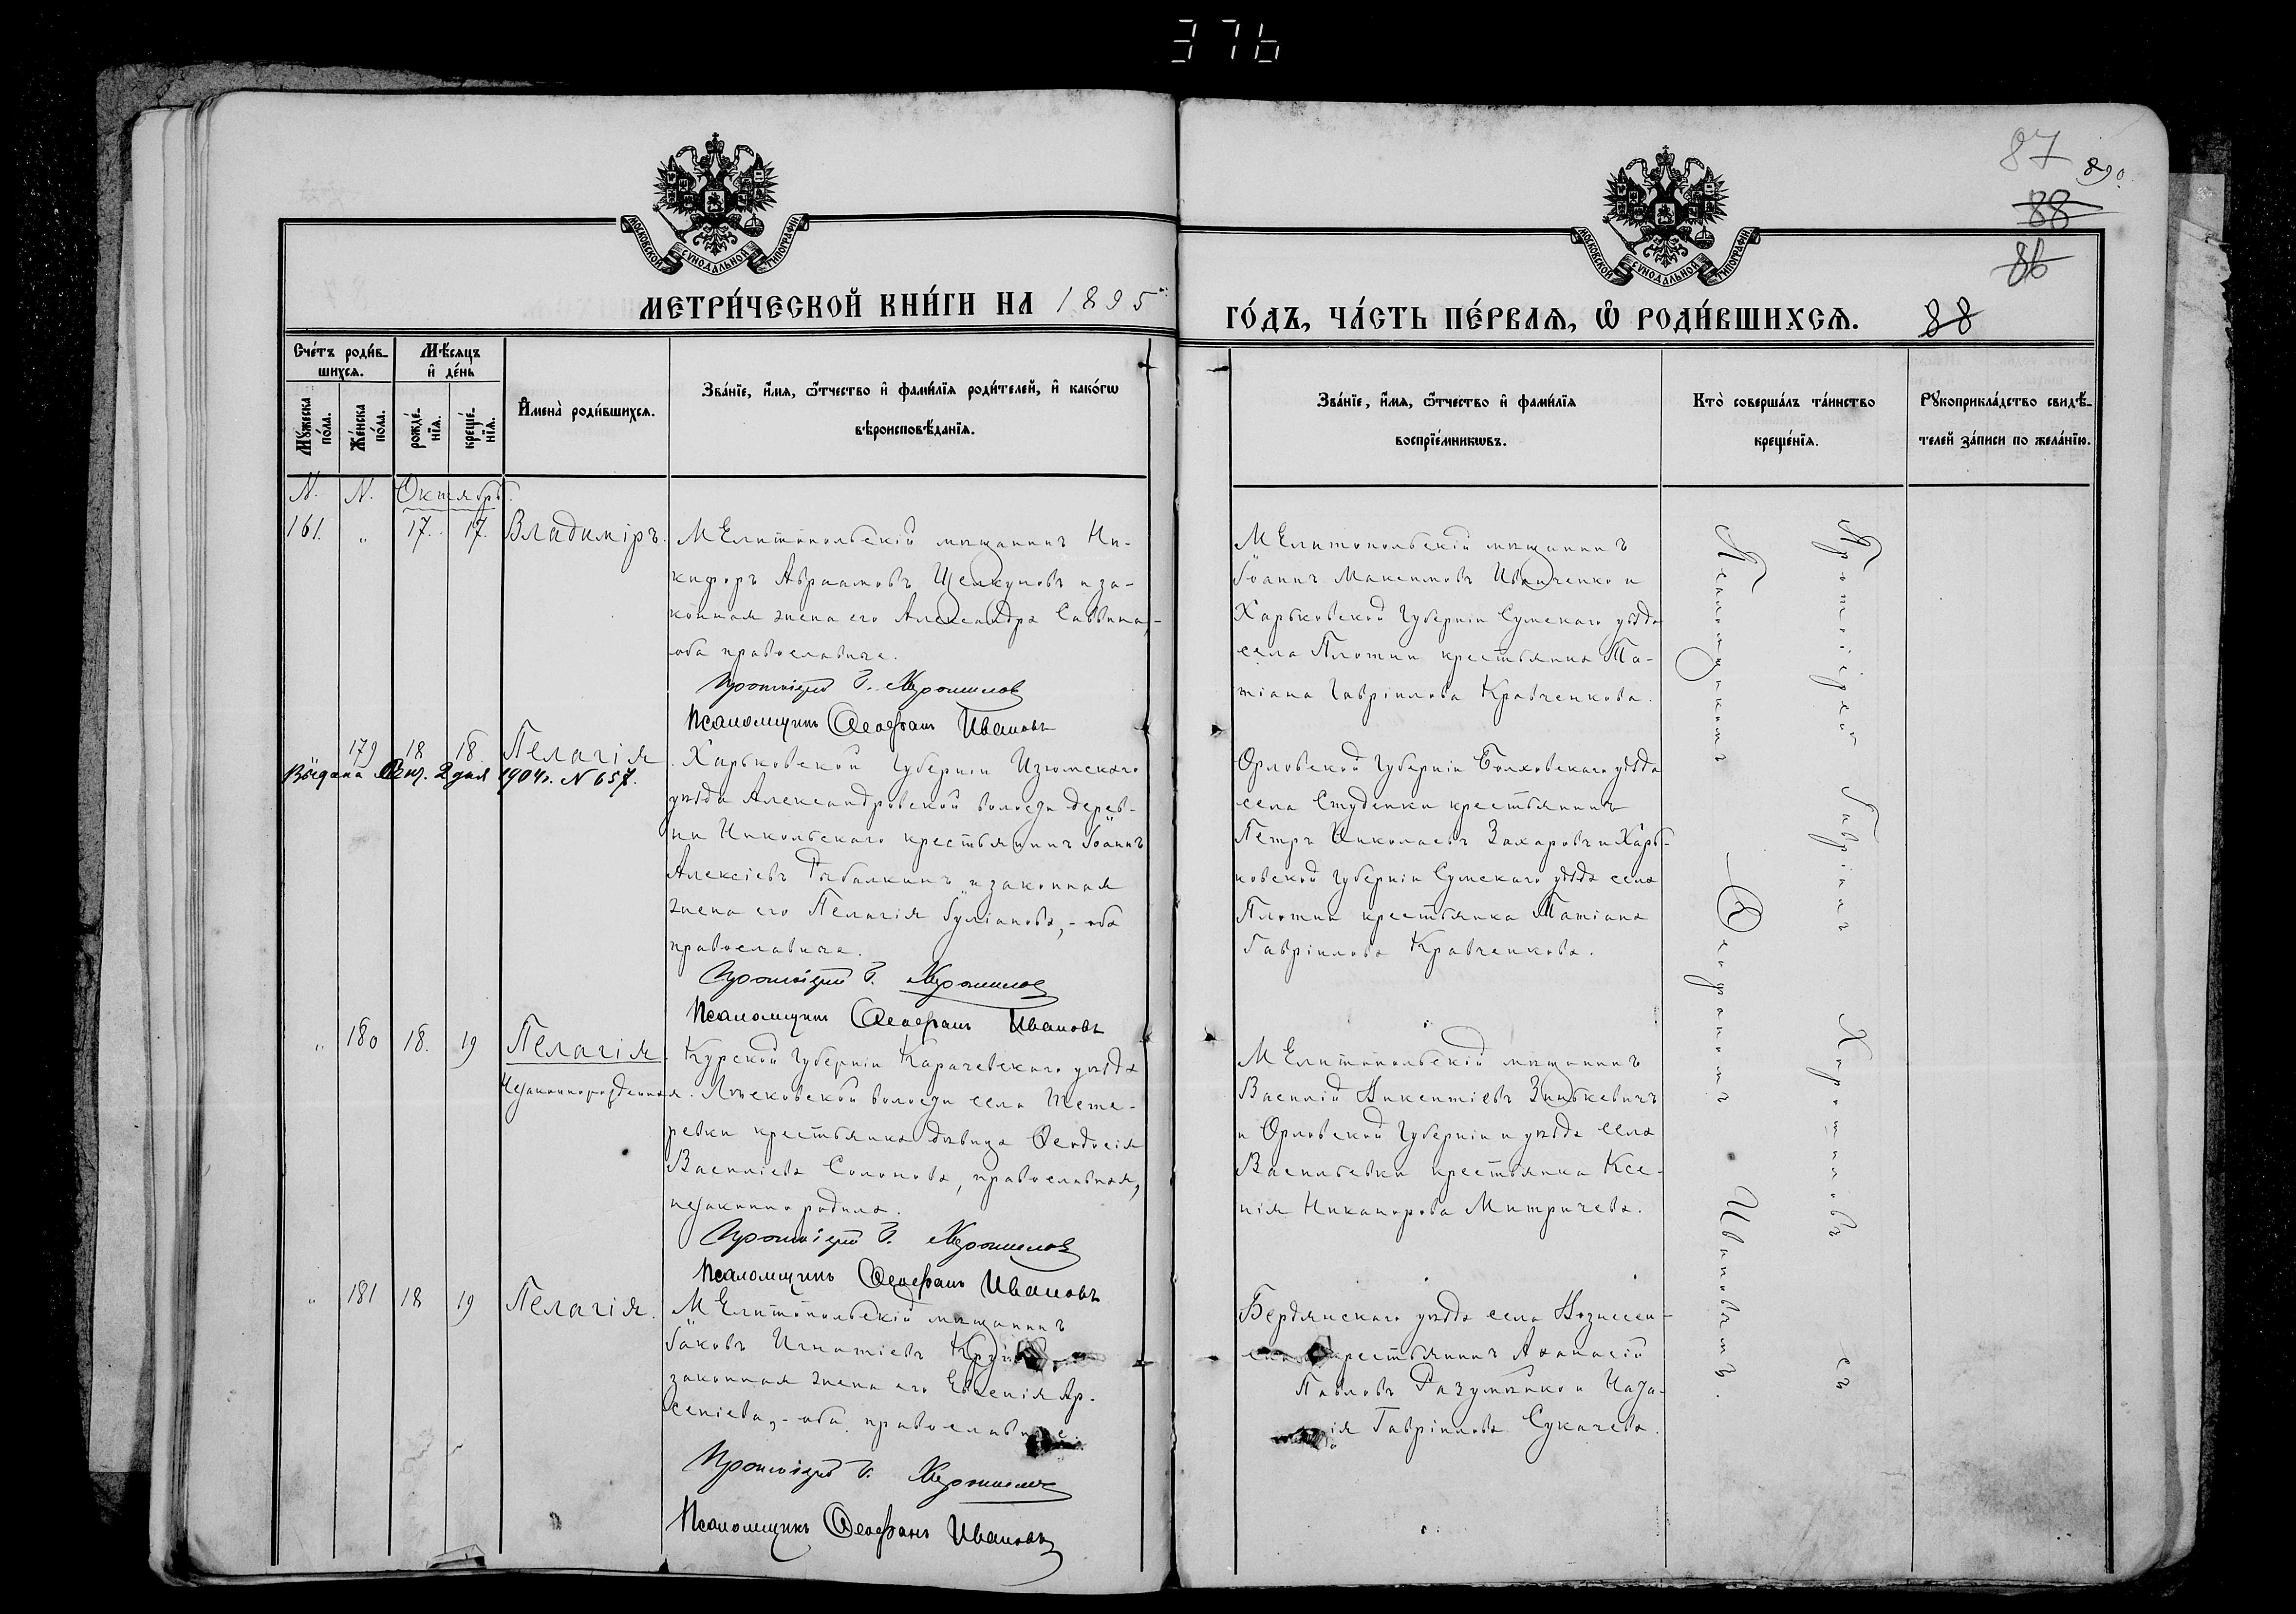 376
87
890
88
86
МОСКОВСКОЙ СѴНОДАЛЬНОЙ ТИПОГРАФІИ
МОСКОВСКОЙ СѴНОДАЛЬНОЙ ТИПОГРАФІИ
МЕТРИ́ЧЕСКОЙ КНИ́ГИ НА 1895
ГО́ДЪ, ЧА́СТЬ ПЕ́РВАѦ, Ѡ РОДИ́ВШИХСѦ. 88
Сче́тъ роди́в-
шихсѧ.
Мꙋ́жеска по́ла.
Же́нска по́ла.
Мѣ́сѧцъ
и҆ де́нь
рожде́-
нїѧ.
креще́-
нїѧ.
И҆мена̀ роди́вшихсѧ.
Зва́нїе, и҆́мѧ, ѻ҆́тчество и҆ фами́лїѧ роди́телей, и҆ како́гѡ
вѣроисповѣ́данїѧ.
Зва́нїе, и҆́мѧ, ѻ҆́тчество и҆ фами́лїѧ
воспрїе́мникѡвъ.
Кто̀ соверша́лъ та́инство
креще́нїѧ.
Рꙋкоприкла́дство свидѣ́-
телей за́писи по жела́нїю.
N. N. Октябрь.
161. „ 17. 17. Владиміръ.
Мелитопольскій мѣщанинъ Ни-
кифоръ Авраамовъ Щелкуновъ и за-
конная жена его Александра Саввина,-
оба православные.
Протоіерей Г. Херошилов
Псаломщикъ Ѳеофанъ Ивановъ
Мелитопольскій мѣщанинъ
Іоаннъ Максимовъ Иванченко и
Харьковской Губерніи Сумскаго уѣзда
села Плотни крестьянка Та-
тіана Гавріилова Кравченкова.
179 18 18 Пелагія
Выдана 2 дня 1904г. N 657.
Харьковской Губерніи Изюмскаго
уѣзда Александровской волости дерев-
ни Никольскаго крестьянинъ Іоаннъ
Алексіевъ Рыбалкинъ и законная
жена его Пелагія Іуліанова,- оба
православные.
Протоіерей Г. Херошилов
Псаломщикъ Ѳеофанъ Ивановъ
Орловской Губерніи Болховскаго уѣзда
села Студенки крестьянинъ
Петръ Николаевъ Захаровъ и Харь-
ковской Губерніи Сумскаго уѣзда села
Плотни крестьянка Татіана
Гавріилова Кравченкова.
„ 180 18. 19 Пелагія
Незаконнорожденная.
Курской Губерніи Карачевскаго уѣзда
волости села Тете-
ревки крестьянка дѣвица Ѳеодосія
Василіева Солопова, православная,
незаконно родила.
Протоіерей Г. Херошилов
Псаломщикъ Ѳеофанъ Ивановъ
Мелитопольскій мѣщанинъ
Василій Викентіевъ Зинькевичъ
и Орловской Губерніи и уѣзда села
Васильевки крестьянка Ксе-
нія Никанорова Митричева.
„ 181 18 19 Пелагія.
Мелитопольскій мѣщанинъ
Іаковъ Игнатіевъ
законная жена его Евгенія Ар-
сеніева,- оба православные.
Протоіерей Г. Херошилов
Псаломщикъ Ѳеофанъ Ивановъ
Бердянскаго уѣзда села Вознесен-
крестьянинъ Аѳанасій
Павловъ Разумѣнко и
Гавріилова Сукачева.
Протоіерей Гавріилъ Херошиловъ съ
Псаломщикомъ Ѳеофаномъ Ивановымъ.